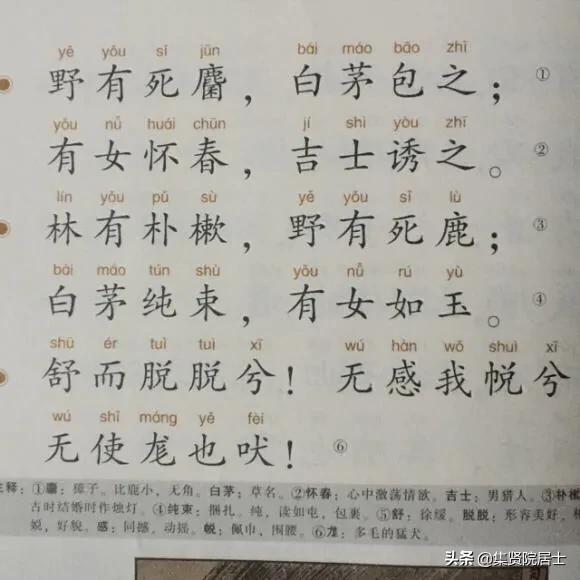 yě yǒu sǐ jūn bái máo bāo zhī
野有死麕，白茅包之；①
yǒu nǚ huái chūn jí shì yòu zhī
有女怀春，吉士诱之。②
lín yǒu pǔ sù yě yǒu sǐ lù
林有朴樕，野有死鹿；③
bái máo tún shù yǒu nǚ rú yù
白茅纯束，有女如玉。④
shū ér tuì tuì xī wú hàn wǒ shuì xī
舒而脱脱兮！无感我帨兮
wú shǐ máng yě fèi
无使尨也吠！⑥
注释：①麕：獐子。比鹿小，无角。白茅：草名。②怀春：心中激荡情欲。吉士：男猎人。③朴樕
古时结婚时作烛灯。④纯束：捆扎。纯，读如屯，包裹。⑤舒：徐缓。脱脱：形容美好，相
娧，好貌。感：同撼，动摇。帨：佩巾，围腰。⑥尨：多毛的猛犬。
头条 @集贤院居士